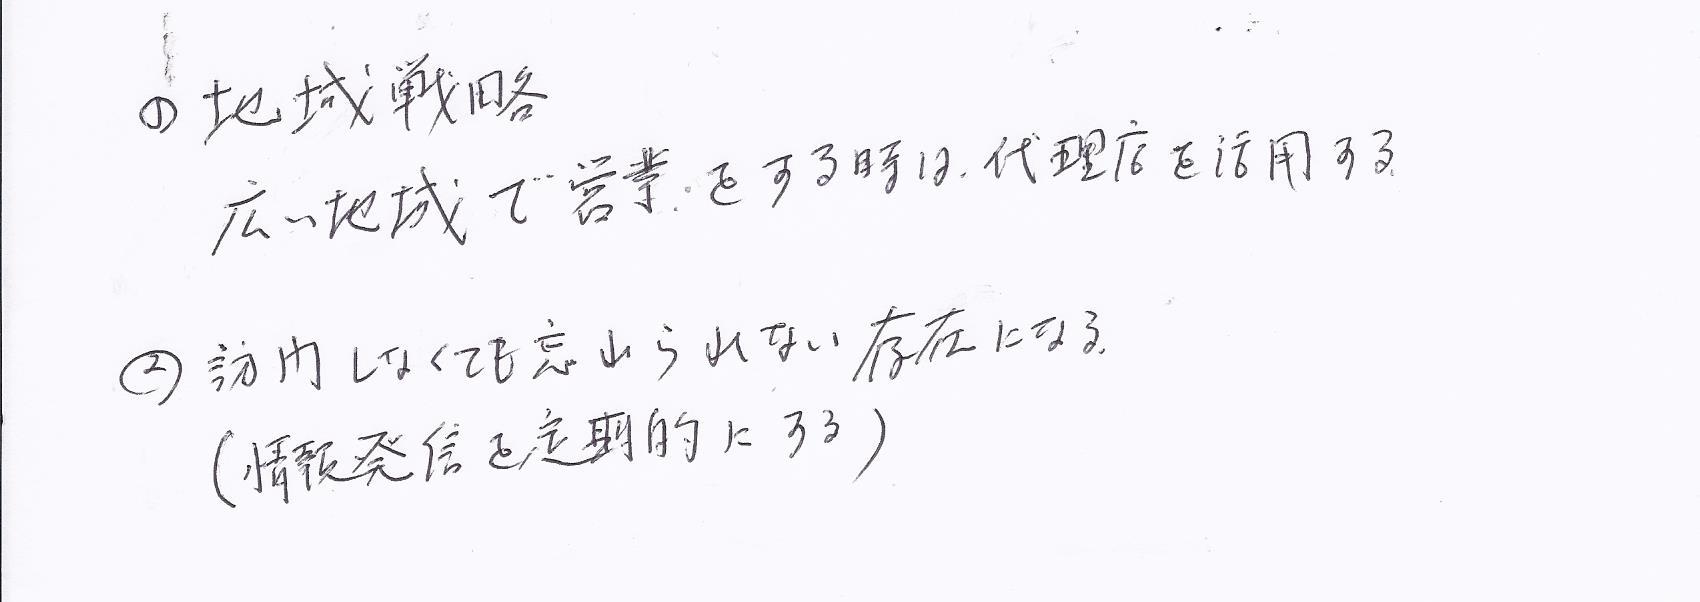 ① 地域戦略
広い地域で営業をする時は、代理店を活用する
② 訪問しなくても忘れられない存在になる
(情報発信を定期的にする)